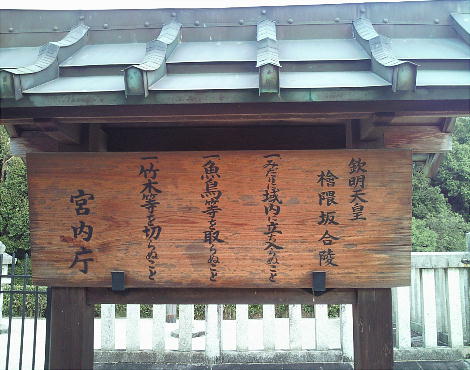 欽明天皇
檜隈坂合陵
一みだりに域内に立入らぬこと
一魚鳥等を取らぬこと
一竹木等を切らぬこと
宮内庁